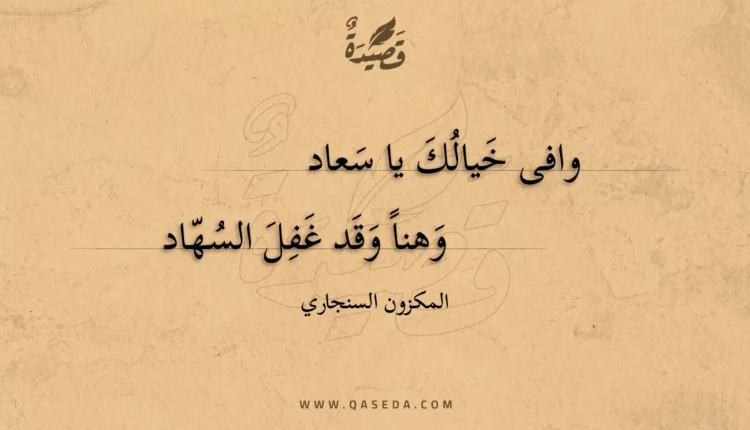 قَصِيْدَةٌ
وافى خَيالُكَ يا سَعاد
وَهناً وَقَد غَفِلَ السُهّاد
المكزون السنجاري
WWW.QASEDA.COM